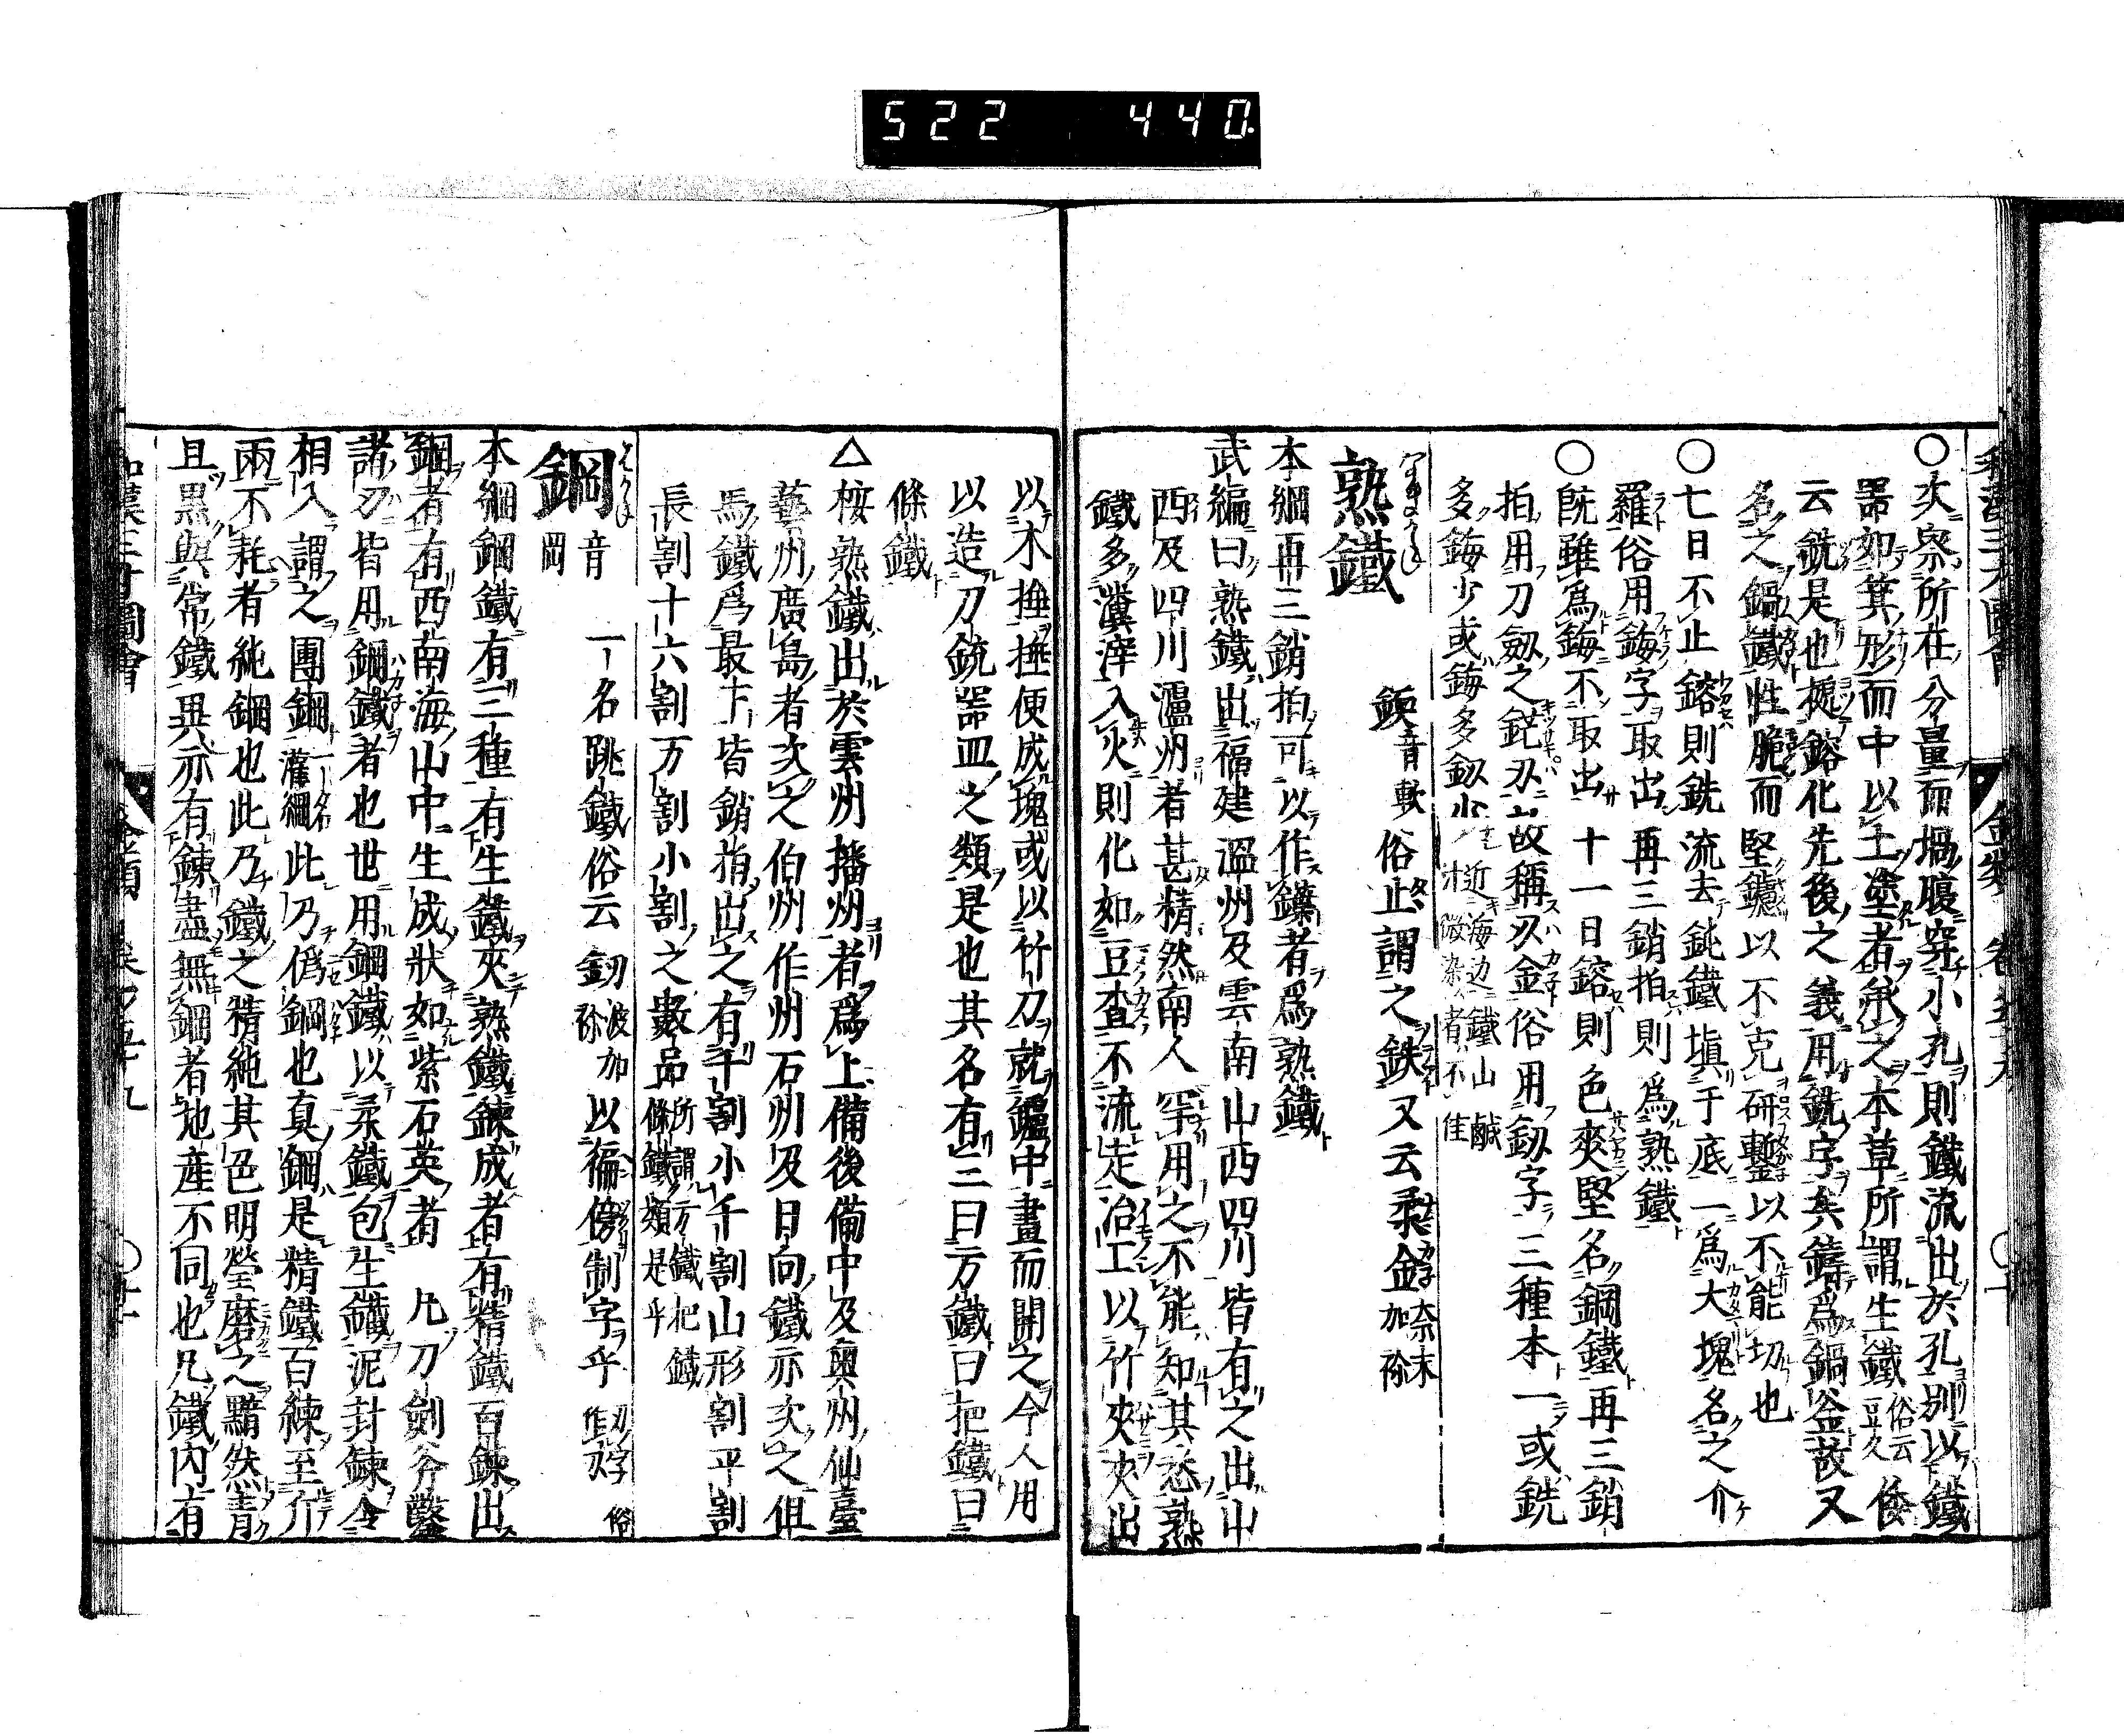 522 440
和漢三才圖會 金類 卷五十九
○次察所在分量而堝腹穿小孔則鐵流出於孔別以鐵
器如箕形而中以土塗者承之本草所謂生鐵俗云豆久倭
云銑是也按鎔化先後之義用銑字矣鑄爲鍋釜故又
名之鍋鐵性脆而堅鑢以不克研蹔以不能切也
○七日不止鎔則銑流去鈍鐵塡于底一爲大塊名之介
羅俗用鋂字取出再三銷拍則爲熟鐵
○既雖爲鋂不取出十一日鎔則色夾堅名鋼鐵再三銷
拍用刀劔之鋩刃故稱刃金俗用釼字三種本一或銑
多鋂少或鋂多釼少近海边鐵山鹹汁微染者不佳
熟鐵
鉕音軟俗止謂之鉄又云柔金奈末加祢
本綱再三銷拍可以作鐷者爲熟鐵
武編曰熟鐵出福建溫州及雲南山西四川皆有之出山
西及四川瀘州者甚精然南人罕用之不能知其悉熟
鐵多瀵滓入火則化如豆查不流走冶工以竹夾夾出
以木捶捶便成塊或以竹刀就鑪中畫而開之今人用
以造刀銃器皿之類是也其名有三曰方鐵曰把鐵曰
條鐵
△桉熟鐵出於雲州播州者爲上備後備中及奥州仙臺
藝州廣島者次之伯州作州石州及日向鐵亦次之但
馬鐵爲最下皆銷拍出之有千割小千割山形割平割
長割十六割万割小割之數品所謂方鐵把鐵條鐵類是乎
鋼 音岡
一名跳鐵俗云釰波加祢以徧傍制字乎刀字俗作刄
本綱鋼鐵有三種有生鐵夾熟鐵鍊成者有精鐵百鍊出
鋼者有西南海山中生成狀如紫石英者 凡刀劍斧鑿
諸刃皆用鋼鐵者也世用鋼鐵以柔鐵包生鐵泥封鍊令
相入謂之團鋼一名灌鋼此乃僞鋼也真鋼是精鐵百練至斤
兩不耗者純鋼也此乃鐵之精純其色明瑩磨之黯然青
且黒與常鐵異亦有鍊盡無鋼者地産不同也凡鐵内有